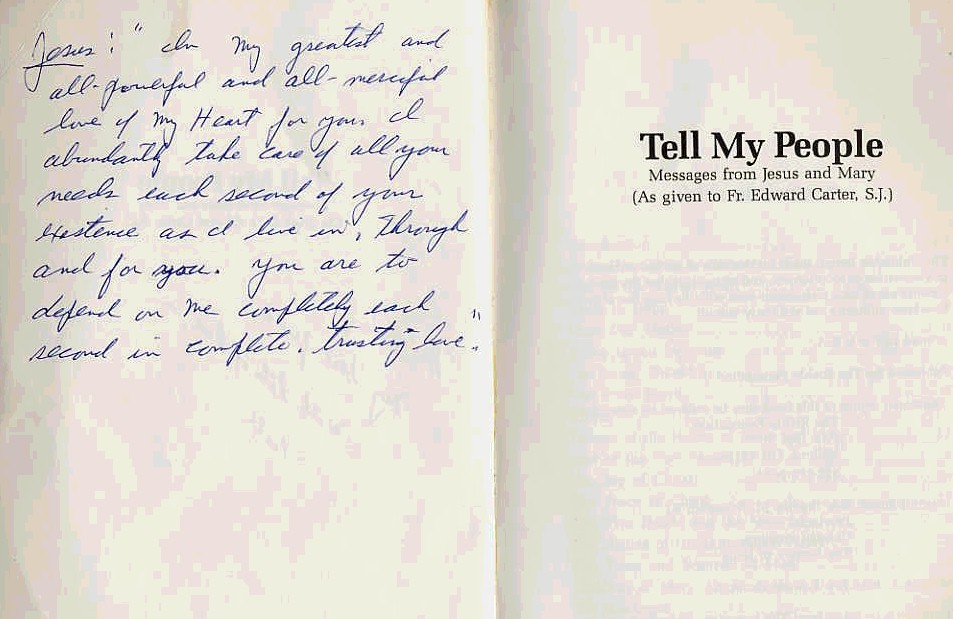 Jesus: "In My greatest and
all-powerful and all-merciful
love of My Heart for you I
abundantly take care of all your
needs each second of your
existence as I live in, through
and for you. You are to
depend on Me completely each
second in complete, trusting love."
Tell My People
Messages from Jesus and Mary
(As given to Fr. Edward Carter, S.J.)